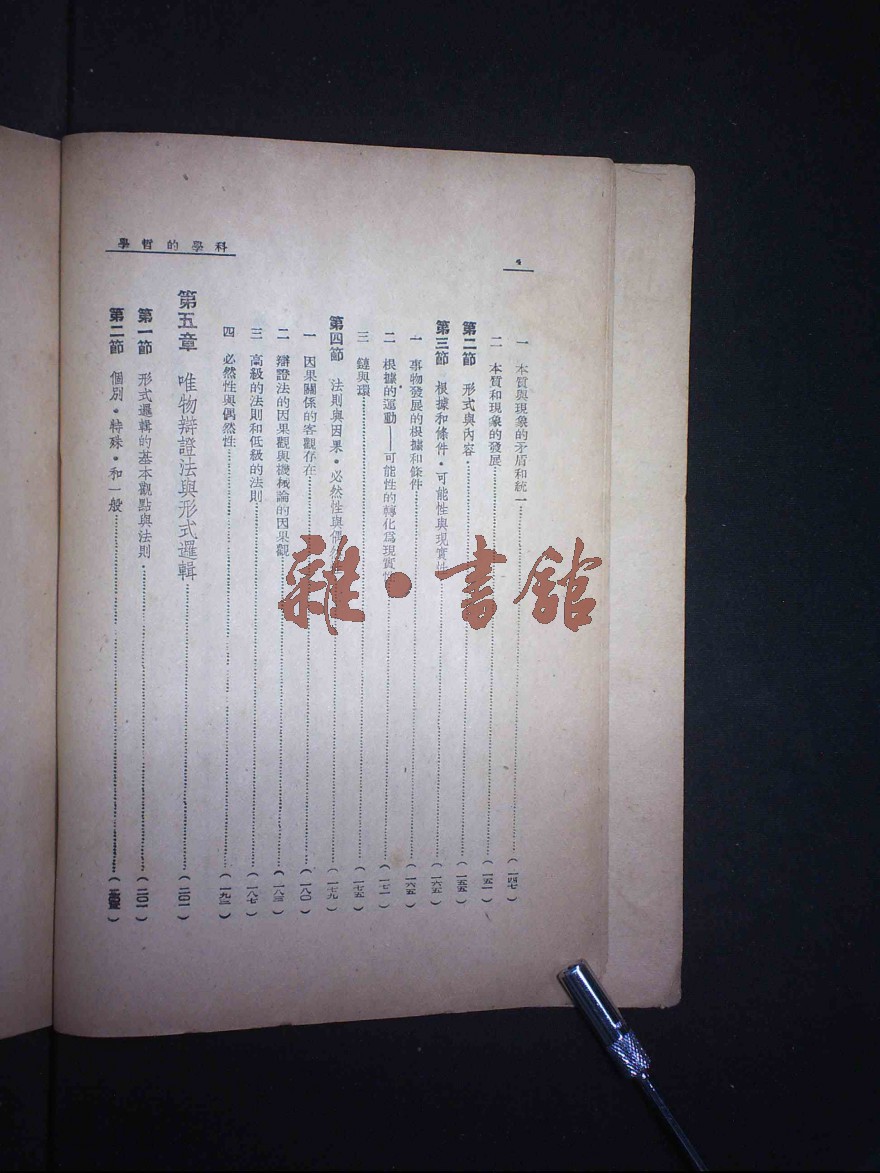 科學的哲學
4
一 本質與現象的矛盾和統一……(一四七)
二 本質和現象的發展……(一五一)
第二節 形式與內容……(一五五)
第三節 根據和條件·可能性與現實性……(一六五)
一 事物發展的根據和條件……(一六五)
二 根據的運動——可能性的轉化爲現實性……(一七一)
三 鏈與環……(一七五)
第四節 法則與因果·必然性與偶然性……(一七九)
一 因果關係的客觀存在……(一八〇)
二 辯證法的因果觀與機械論的因果觀……(一八三)
三 高級的法則和低級的法則……(一八七)
四 必然性與偶然性……(一九三)
第五章 唯物辯證法與形式邏輯……(二〇一)
第一節 形式邏輯的基本觀點與法則……(二〇一)
第二節 個別·特殊·和一般……
雜·書館